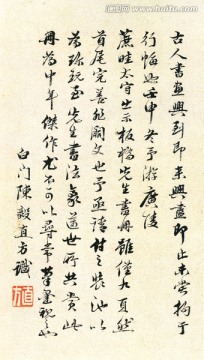 古人書畫興到即来興盡即止未嘗拘于
行幅也壬申冬予游廣陵
蔗畦太守出示板橋先生書冊雖僅九頁然
首尾完善無闕文也予亟請付之裝池以
為珍玩至先生書法篆
此
冊為中年傑作尤不可以尋常筆墨視之也
白门陳毅直方識